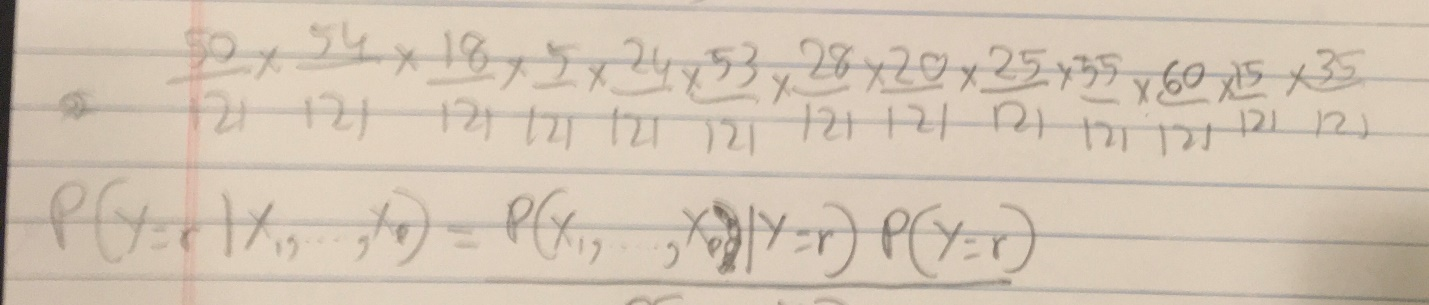 50/121 × 54/121 × 18/121 × 5/121 × 24/121 × 53/121 × 28/121 × 20/121 × 25/121 × 35/121 × 60/121 × 15/121 × 35/121
P(Y=r|X₁,....,Xₚ) = P(X₁,....,Xₚ|Y=r) P(Y=r)